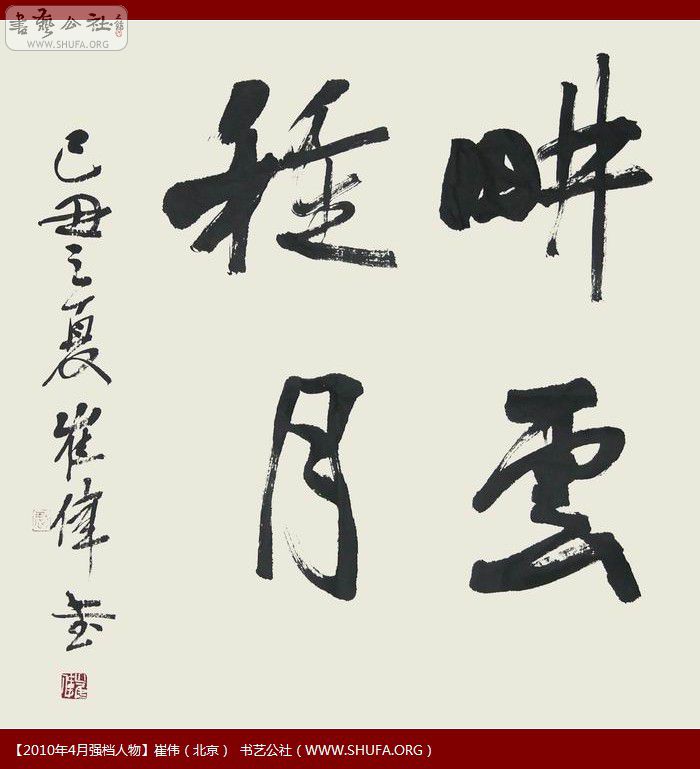 書藝公社
WWW.SHUFA.ORG
畊雲
種月
己丑之夏崔偉書
【2010年4月强档人物】崔伟（北京） 书艺公社（WWW.SHUFA.ORG）